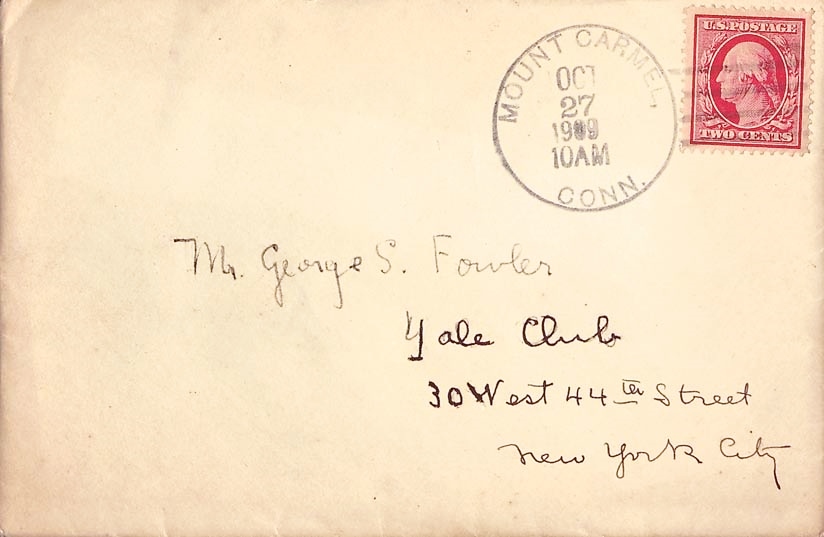 MOUNT CARMEL,
OCT
27
1909
10AM
CONN.
U.S. POSTAGE
TWO CENTS
Mr. George S. Fowler
Yale Club
30 West 44th Street
New York City